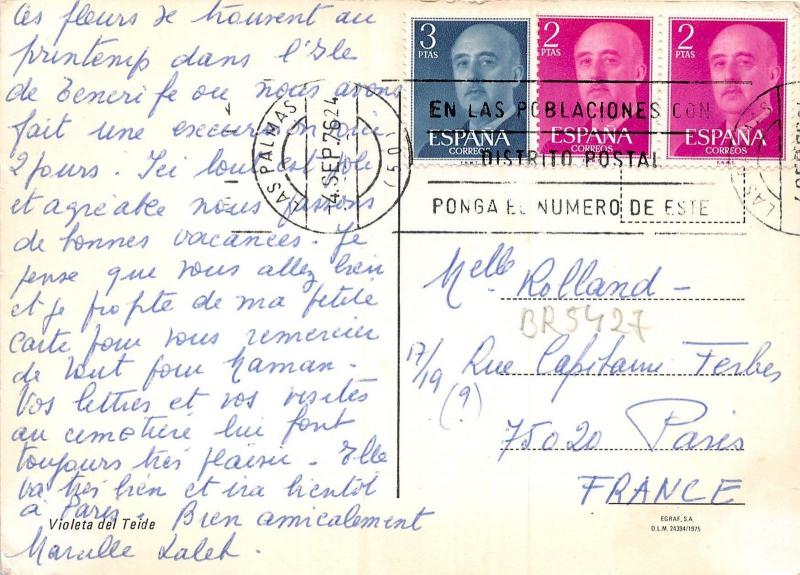 Ces fleurs se trouvent au
printemps dans l'Ile
de Tenerife ou nous avons
fait une excursion ici
2 jours. Ici tout est joli
et agréable nous passons
de bonnes vacances. Je
pense que vous allez bien
et je profite de ma petite
carte pour vous remercier
de tout pour Maman.
Vos lettres et vos visites
au cimetière lui font
toujours très plaisir. Elle
va très bien et ira bientôt
à Paris. Bien amicalement
Violeta del Teide
3
PTAS
ESPAÑA
CORREOS
2
PTAS
ESPAÑA
CORREOS
2
PTAS
ESPAÑA
CORREOS
LAS PALMAS
4 SEP. 76 24
(501)
EN LAS POBLACIONES CON
DISTRITO POSTAL
PONGA EL NUMERO DE ESTE
Melle Rolland -
BR5427
17/19 Rue Capitaine Ferber
(?)
75020 Paris
FRANCE
EGRAF, S.A.
D.L.M. 24394/1975